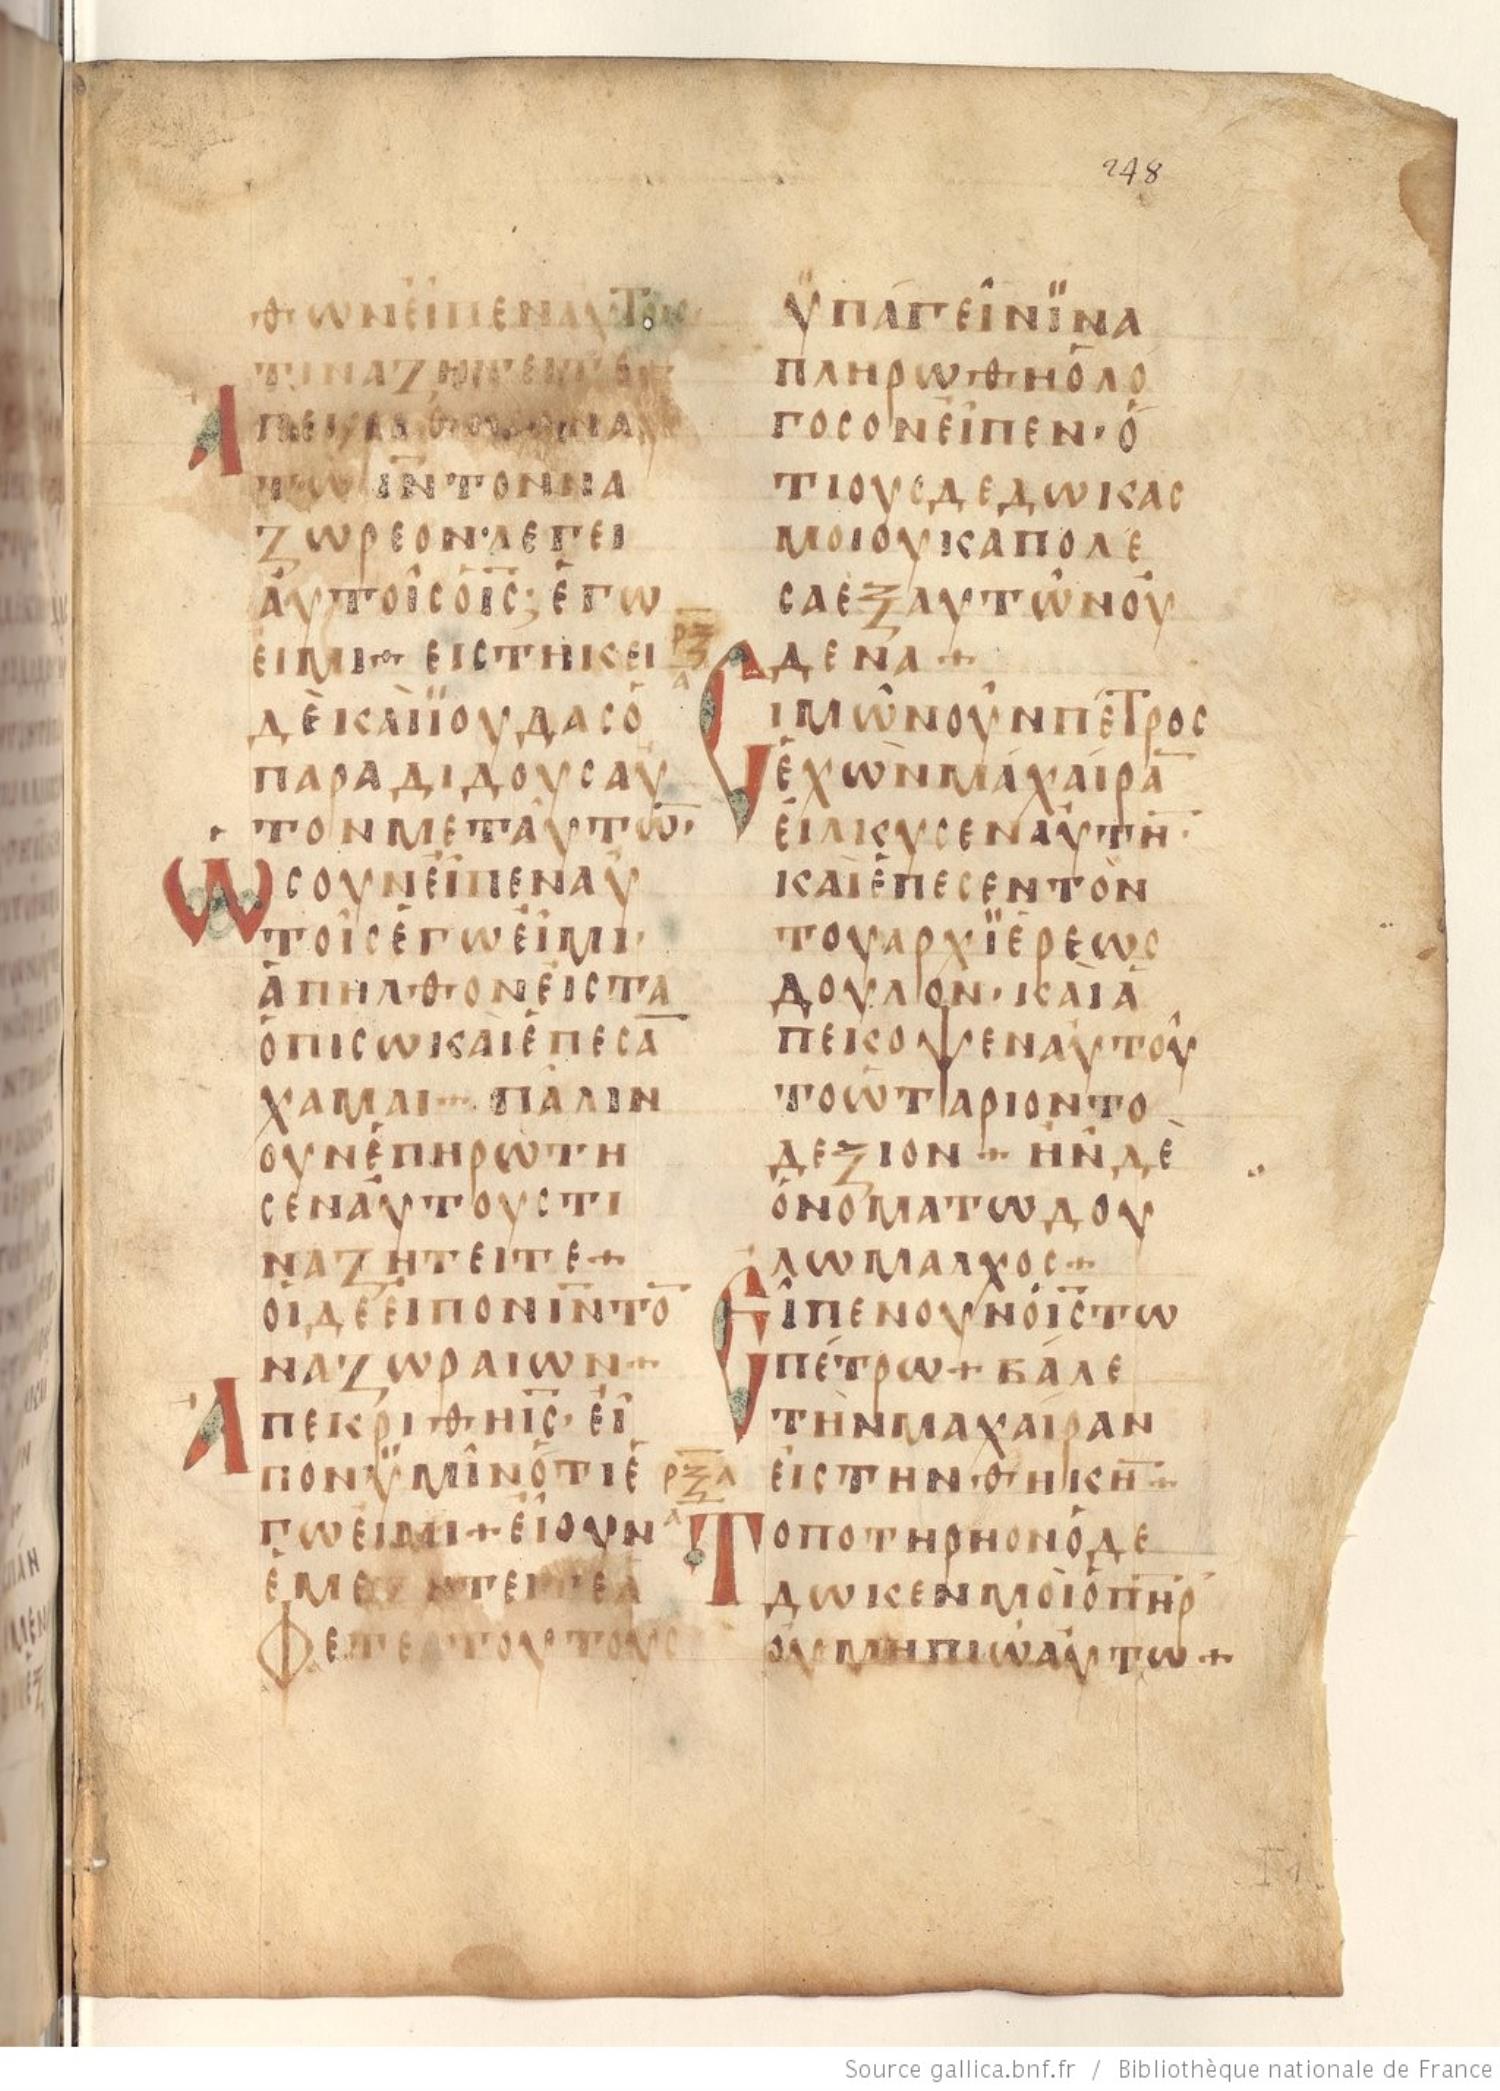 248
θωνεἶπεναυτοις
τιναζητειτε
Απεκριθησανα
τω ῑν̄ τονΝα
ζωρεον·λεγει
ἀυτοῖσὁῑς̄; ἐγω
ἐιμι+ ἐιστηκει
ρξ
α
δὲκαὶϊουδασὁ
παραδιδουσαὐ
τονμεταὐτω̅·
Ὡσουνεἶπεναὐ
τοῖσἐγωἐῖμι·
ἀπηλθονἐιστα
ὀπισωκαὶἐπεσα̅
χαμαι+ πάλιν
ουνἐπηρώτη
σεναὐτουστι
ναζητειτε+
ὁιδεἐιπον ῑν̄ το̅
ναζωραιων+
Ἀπεκριθη ῑς̄· ἐῖ
πονϋμῖνὅτιἐ
γωἐιμι+ἐῖουν
ἐμεζητειτεἀ
Φετετουτους
ϋπάγεῖνϊνα
πληρωθηὁλό
γοσονἐῖπεν·ὁ
τιουσδεδωκασ
μοιουκαπολε
σαἐξαυτῶνού
δενα+
Cιμῶνοῦνπέτρος
ἐχωὴνμάχαίρα̅
ἐιλκυσεναὐτη̅·
καὶἐπεσεντὸν
τουαρχϊἐρεωσ
δουλον·καὶἀ
πεικοψεναὐτοῦ
τοὠταριοντο
δεξιον+ ἠν̃δὲ
ὀνοματωδου
λωμαλχος+
Εἶπενουνὁῑς̄τω
πέτρω+βάλε
τὴνμαχαίραν
ἐιστηνθηκη̅+
ρξα
α
Τοποτηρηονὁδε
δωκενμοιὁπ̅η̅ρ̅
ὀυμηπιωἀυτω+
Source gallica.bnf.fr / Bibliothèque nationale de France